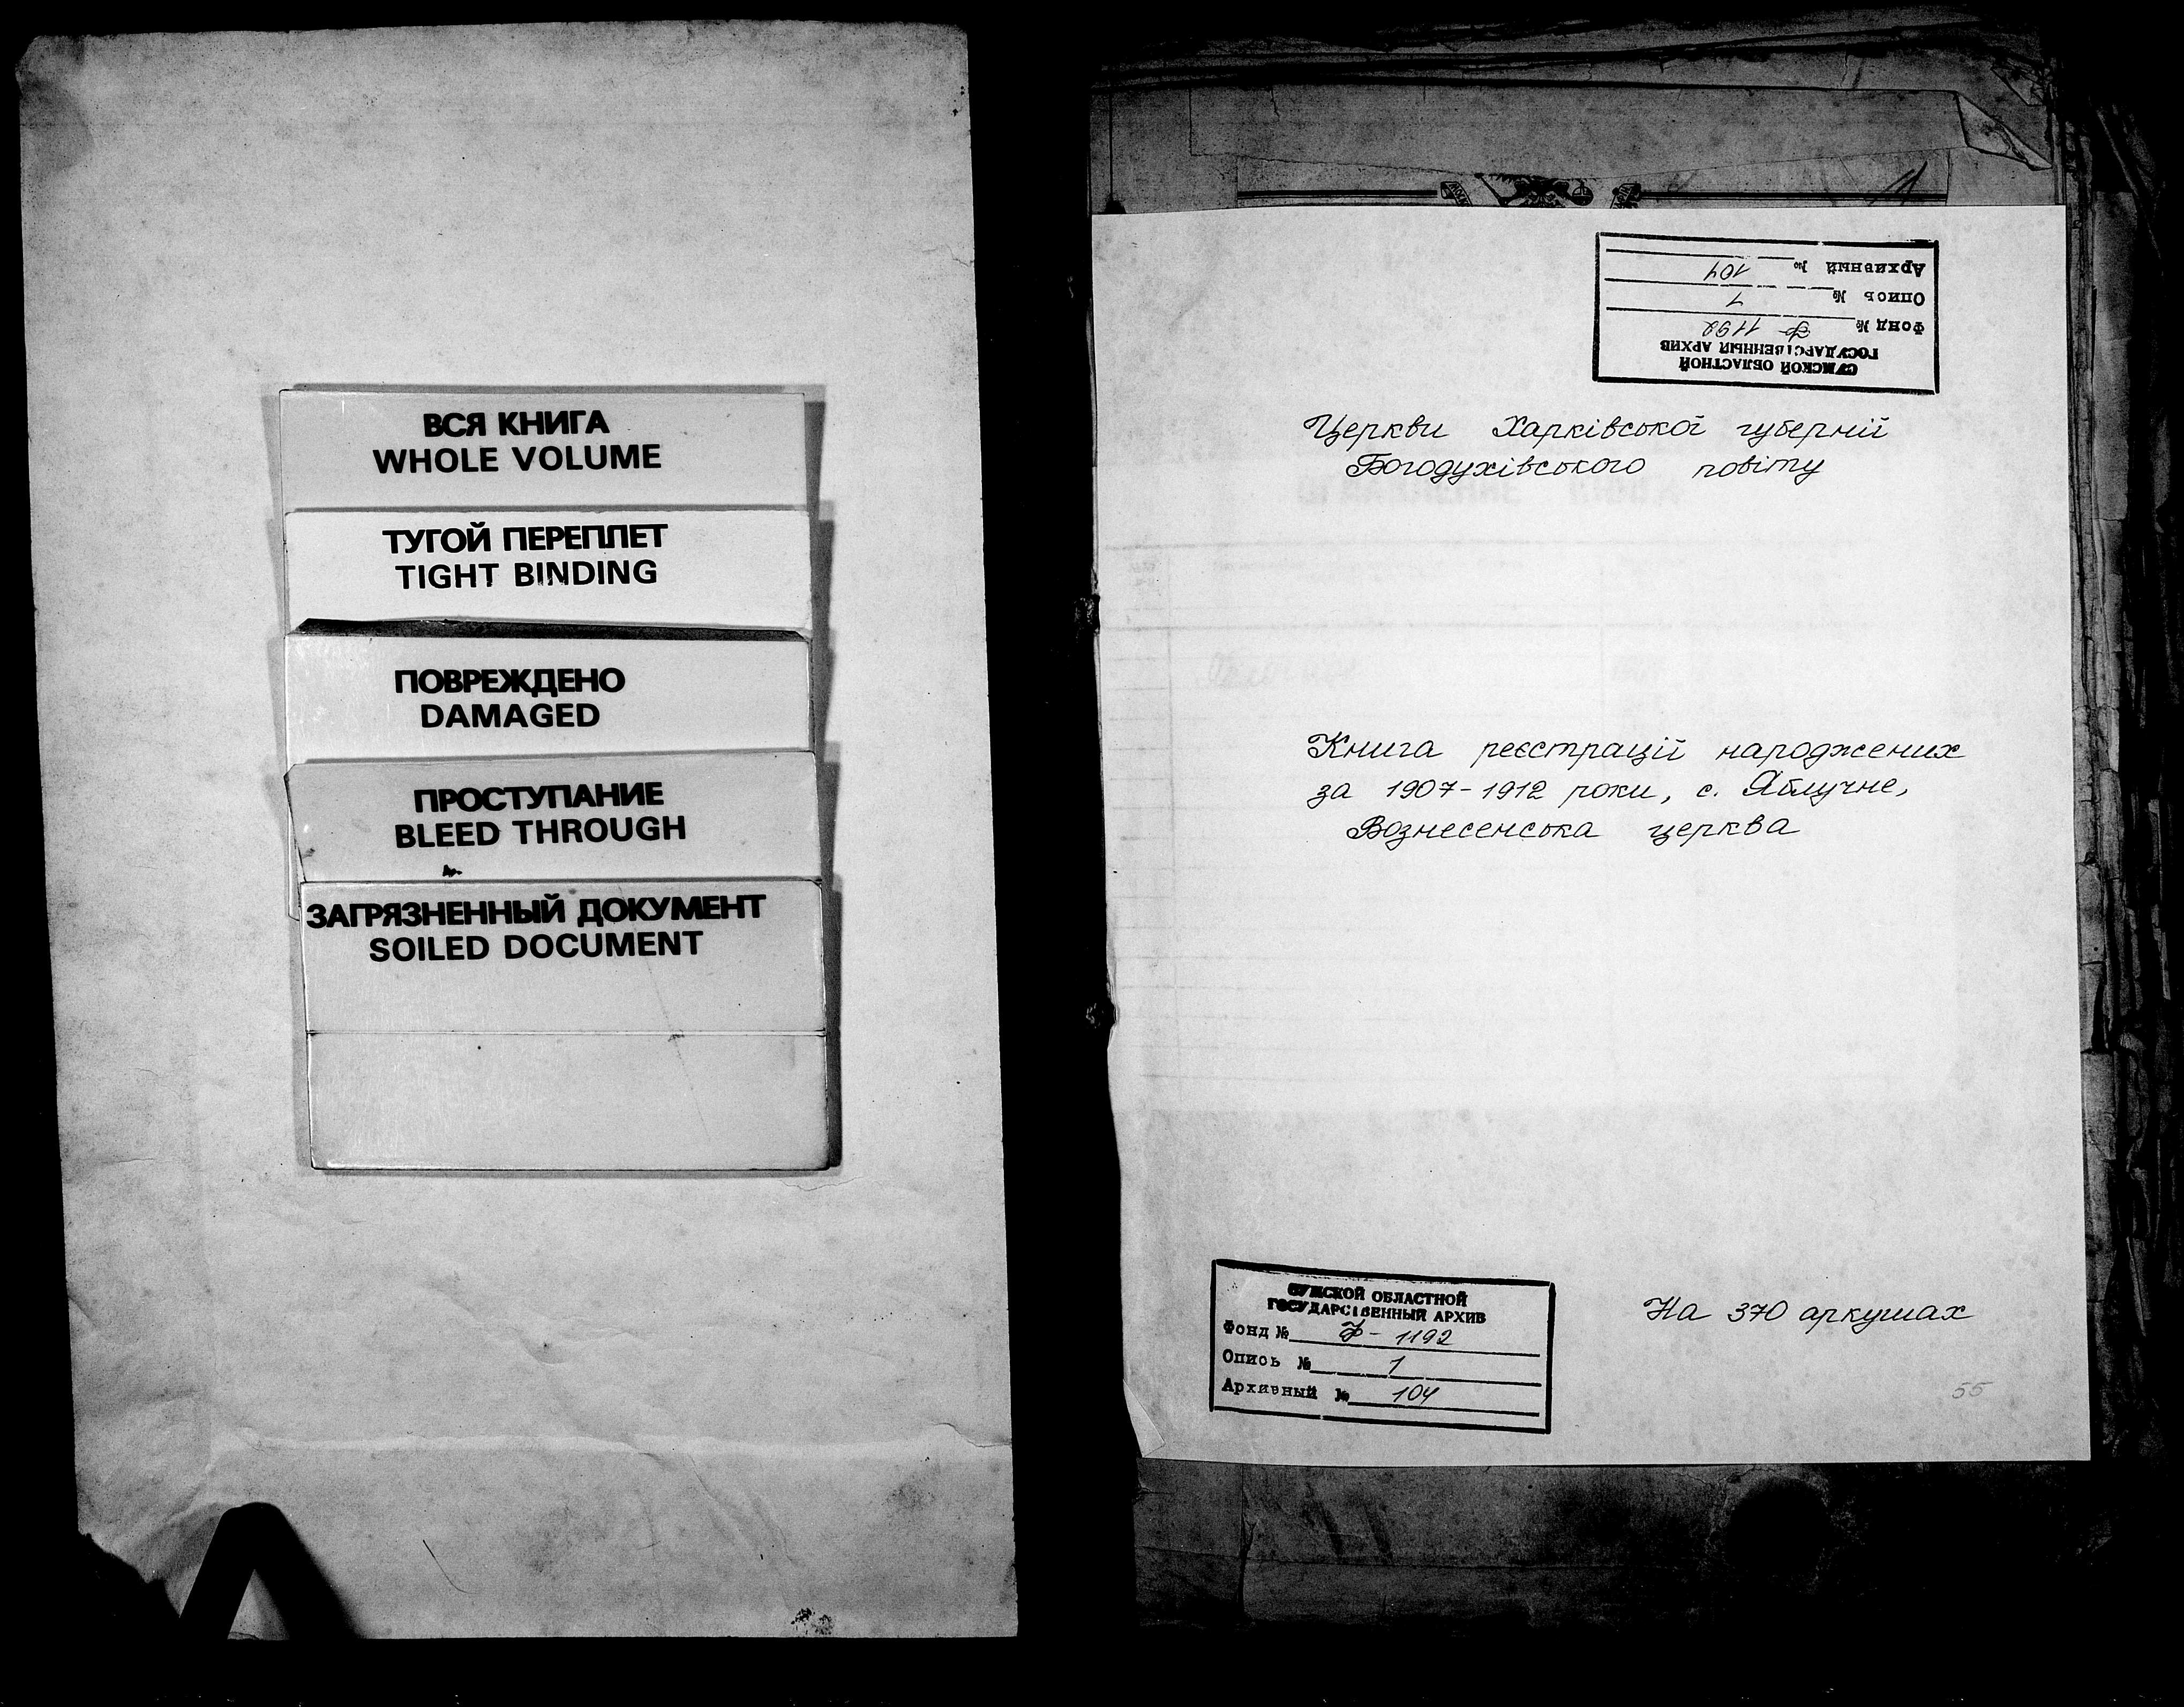 ВСЯ КНИГА
WHOLE VOLUME
ТУГОЙ ПЕРЕПЛЕТ
TIGHT BINDING
ПОВРЕЖДЕНО
DAMAGED
ПРОСТУПАНИЕ
BLEED THROUGH
ЗАГРЯЗНЕННЫЙ ДОКУМЕНТ
SOILED DOCUMENT
СУМСКОЙ ОБЛАСТНОЙ
ГОСУДАРСТВЕННЫЙ АРХИВ
Фонд № Ф- 1192
Опись № 1
Архивный № 104
Церкви Харківської губернії
Богодухівського повіту
Книга реєстрації народжених
за 1907-1912 роки, с. Яблучне,
Вознесенська церква
СУМСКОЙ ОБЛАСТНОЙ
ГОСУДАРСТВЕННЫЙ АРХИВ
Фонд № Ф- 1192
Опись № 1
Архивный № 104
На 370 аркушах
55